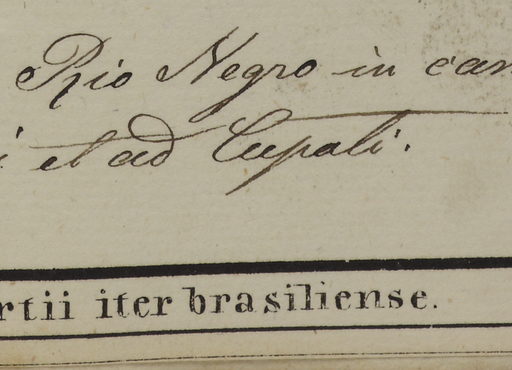 Rio Negro in cam
i et ad Cupati.
rtii iter brasiliense.